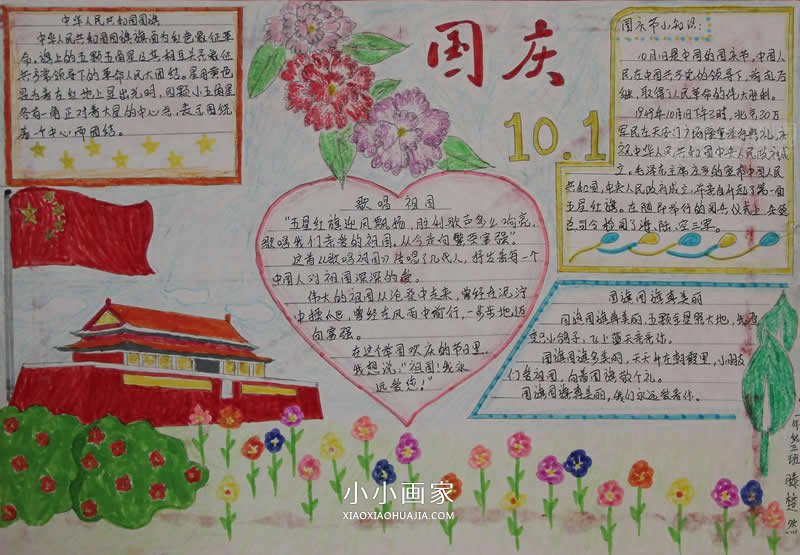 中华人民共和国国旗
中华人民共和国国旗旗面为红色象征革
命。旗上的五颗五角星及其相互关系象征
共产党领导下的革命人民大团结。星用黄色
是为着在红地上显出光明，四颗小五角星
各有一角正对着大星的中心点，表示围绕
着一个中心而团结。
国庆
10.1
国庆节小知识：
10月1日是中国的国庆节，中国人
民在中国共产党的领导下，前仆后
继，取得了人民革命的伟大胜利。
1949年10月1日下午3时，北京30万
军民在天安门广场隆重举行典礼，庆
祝中华人民共和国中央人民政府成
立。毛泽东主席庄严的宣布中国人民
共和国，中央人民政府成立，并亲自升起了第一面
五星红旗。在随即举行的阅兵仪式上，朱德
总司令检阅了海、陆、空三军。
歌唱祖国
“五星红旗迎风飘扬，胜利歌声多么响亮，
歌唱我们亲爱的祖国，从今走向繁荣富强”。
这首《歌唱祖国》传唱了几代人，抒发着每一个
中国人对祖国深深的爱。
伟大的祖国从沧桑中走来，曾经在泥泞
中挣扎过，曾经在风雨中前行，一步步地迈
向富强。
在这个举国欢庆的节日里，
我想说：“祖国！我永
远爱您！”
国旗国旗真美丽
国旗国旗真美丽，五颗金星照大地，我愿
变只小鸽子，飞上蓝天亲亲你。
国旗国旗多美丽，天天升在朝霞里，小朋友
们爱祖国，向着国旗敬个礼。
国旗国旗真美丽，我们永远爱着你。
小小画家
XIAOXIAOHUAJIA.COM